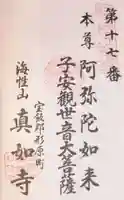 第十七番
本尊 阿弥陀如来
子安観世音大菩薩
宝飯郡形原町
海性山 真如寺